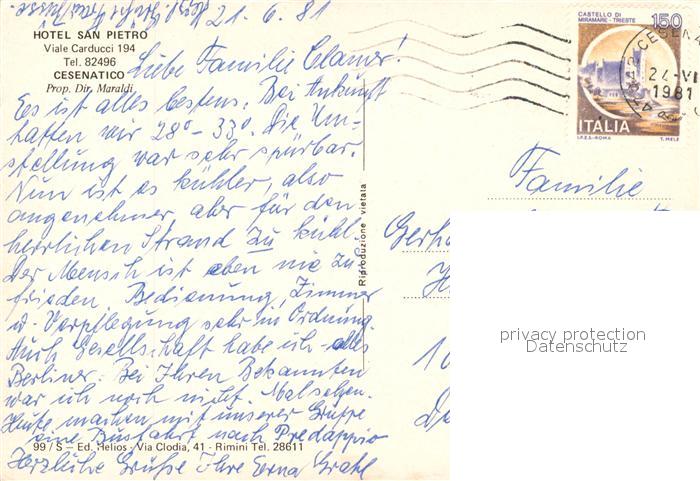 21. 6. 81
HOTEL SAN PIETRO
Viale Carducci 194
Tel. 82496
CESENATICO
Prop. Dir. Maraldi
Liebe Familie Clamer!
Es ist alles bestens. Bei Ankunft
hatten wir 28° - 33°. Die Um-
stellung war sehr spürbar.
Nun ist es kühler, also
angenehmer, aber für den
herrlichen Strand zu kühl.
Der Mensch ist eben nie zu-
frieden. Bedienung, Zimmer
u. Verpflegung sehr in Ordnung.
Auch Gesellschaft habe ich - alles
Berliner. Bei Ihren Bekannten
war ich noch nicht. Mal sehen.
Heute machen mit unserer Gruppe
eine Busfahrt nach Predappio
99/S - Ed. Helios - Via Clodia, 41 - Rimini Tel. 28611
Herzliche Grüße Ihre Erna
Riproduzione vietata
CASTELLO DI
MIRAMARE - TRIESTE
150
ITALIA
I.P.Z.S. - ROMA
T. MELE
CESENA
24-VI
1981
Familie
Gerha
privacy protection
Datenschutz